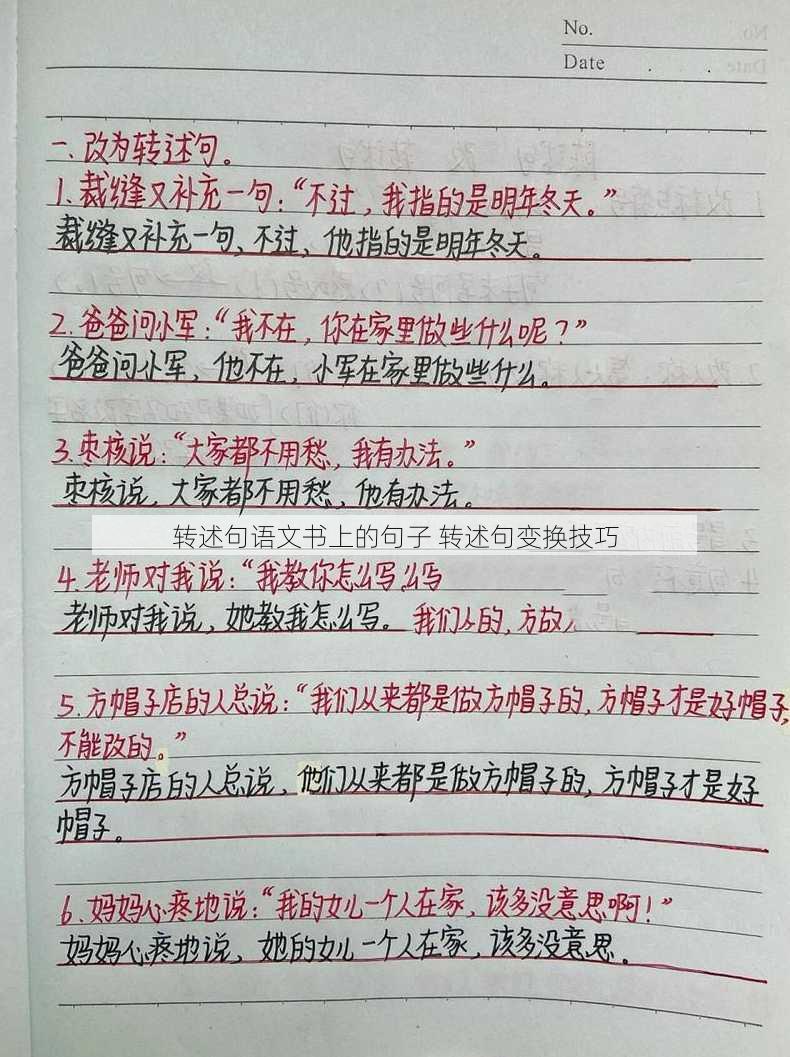 No.
Date
一、改为转述句。
1. 裁缝又补充一句：“不过，我指的是明年冬天。”
裁缝又补充一句，不过，他指的是明年冬天。
2. 爸爸问小军：“我不在，你在家里做些什么呢？”
爸爸问小军，他不在，小军在家里做些什么。
3. 枣核说：“大家都不用愁，我有办法。”
枣核说，大家都不用愁，他有办法。
转述句语文书上的句子 转述句变换技巧
4. 老师对我说：“我教你怎么写么写
老师对我说，她教我怎么写。 我们人的，方故
5. 方帽子店的人总说：“我们从来都是做方帽子的，方帽子才是好帽子，
不能改的。”
方帽子店的人总说，他们从来都是做方帽子的，方帽子才是好
帽子。
6. 妈妈心疼地说：“我的女儿一个人在家，该多没意思啊！”
妈妈心疼地说，她的女儿一个人在家，该多没意思。